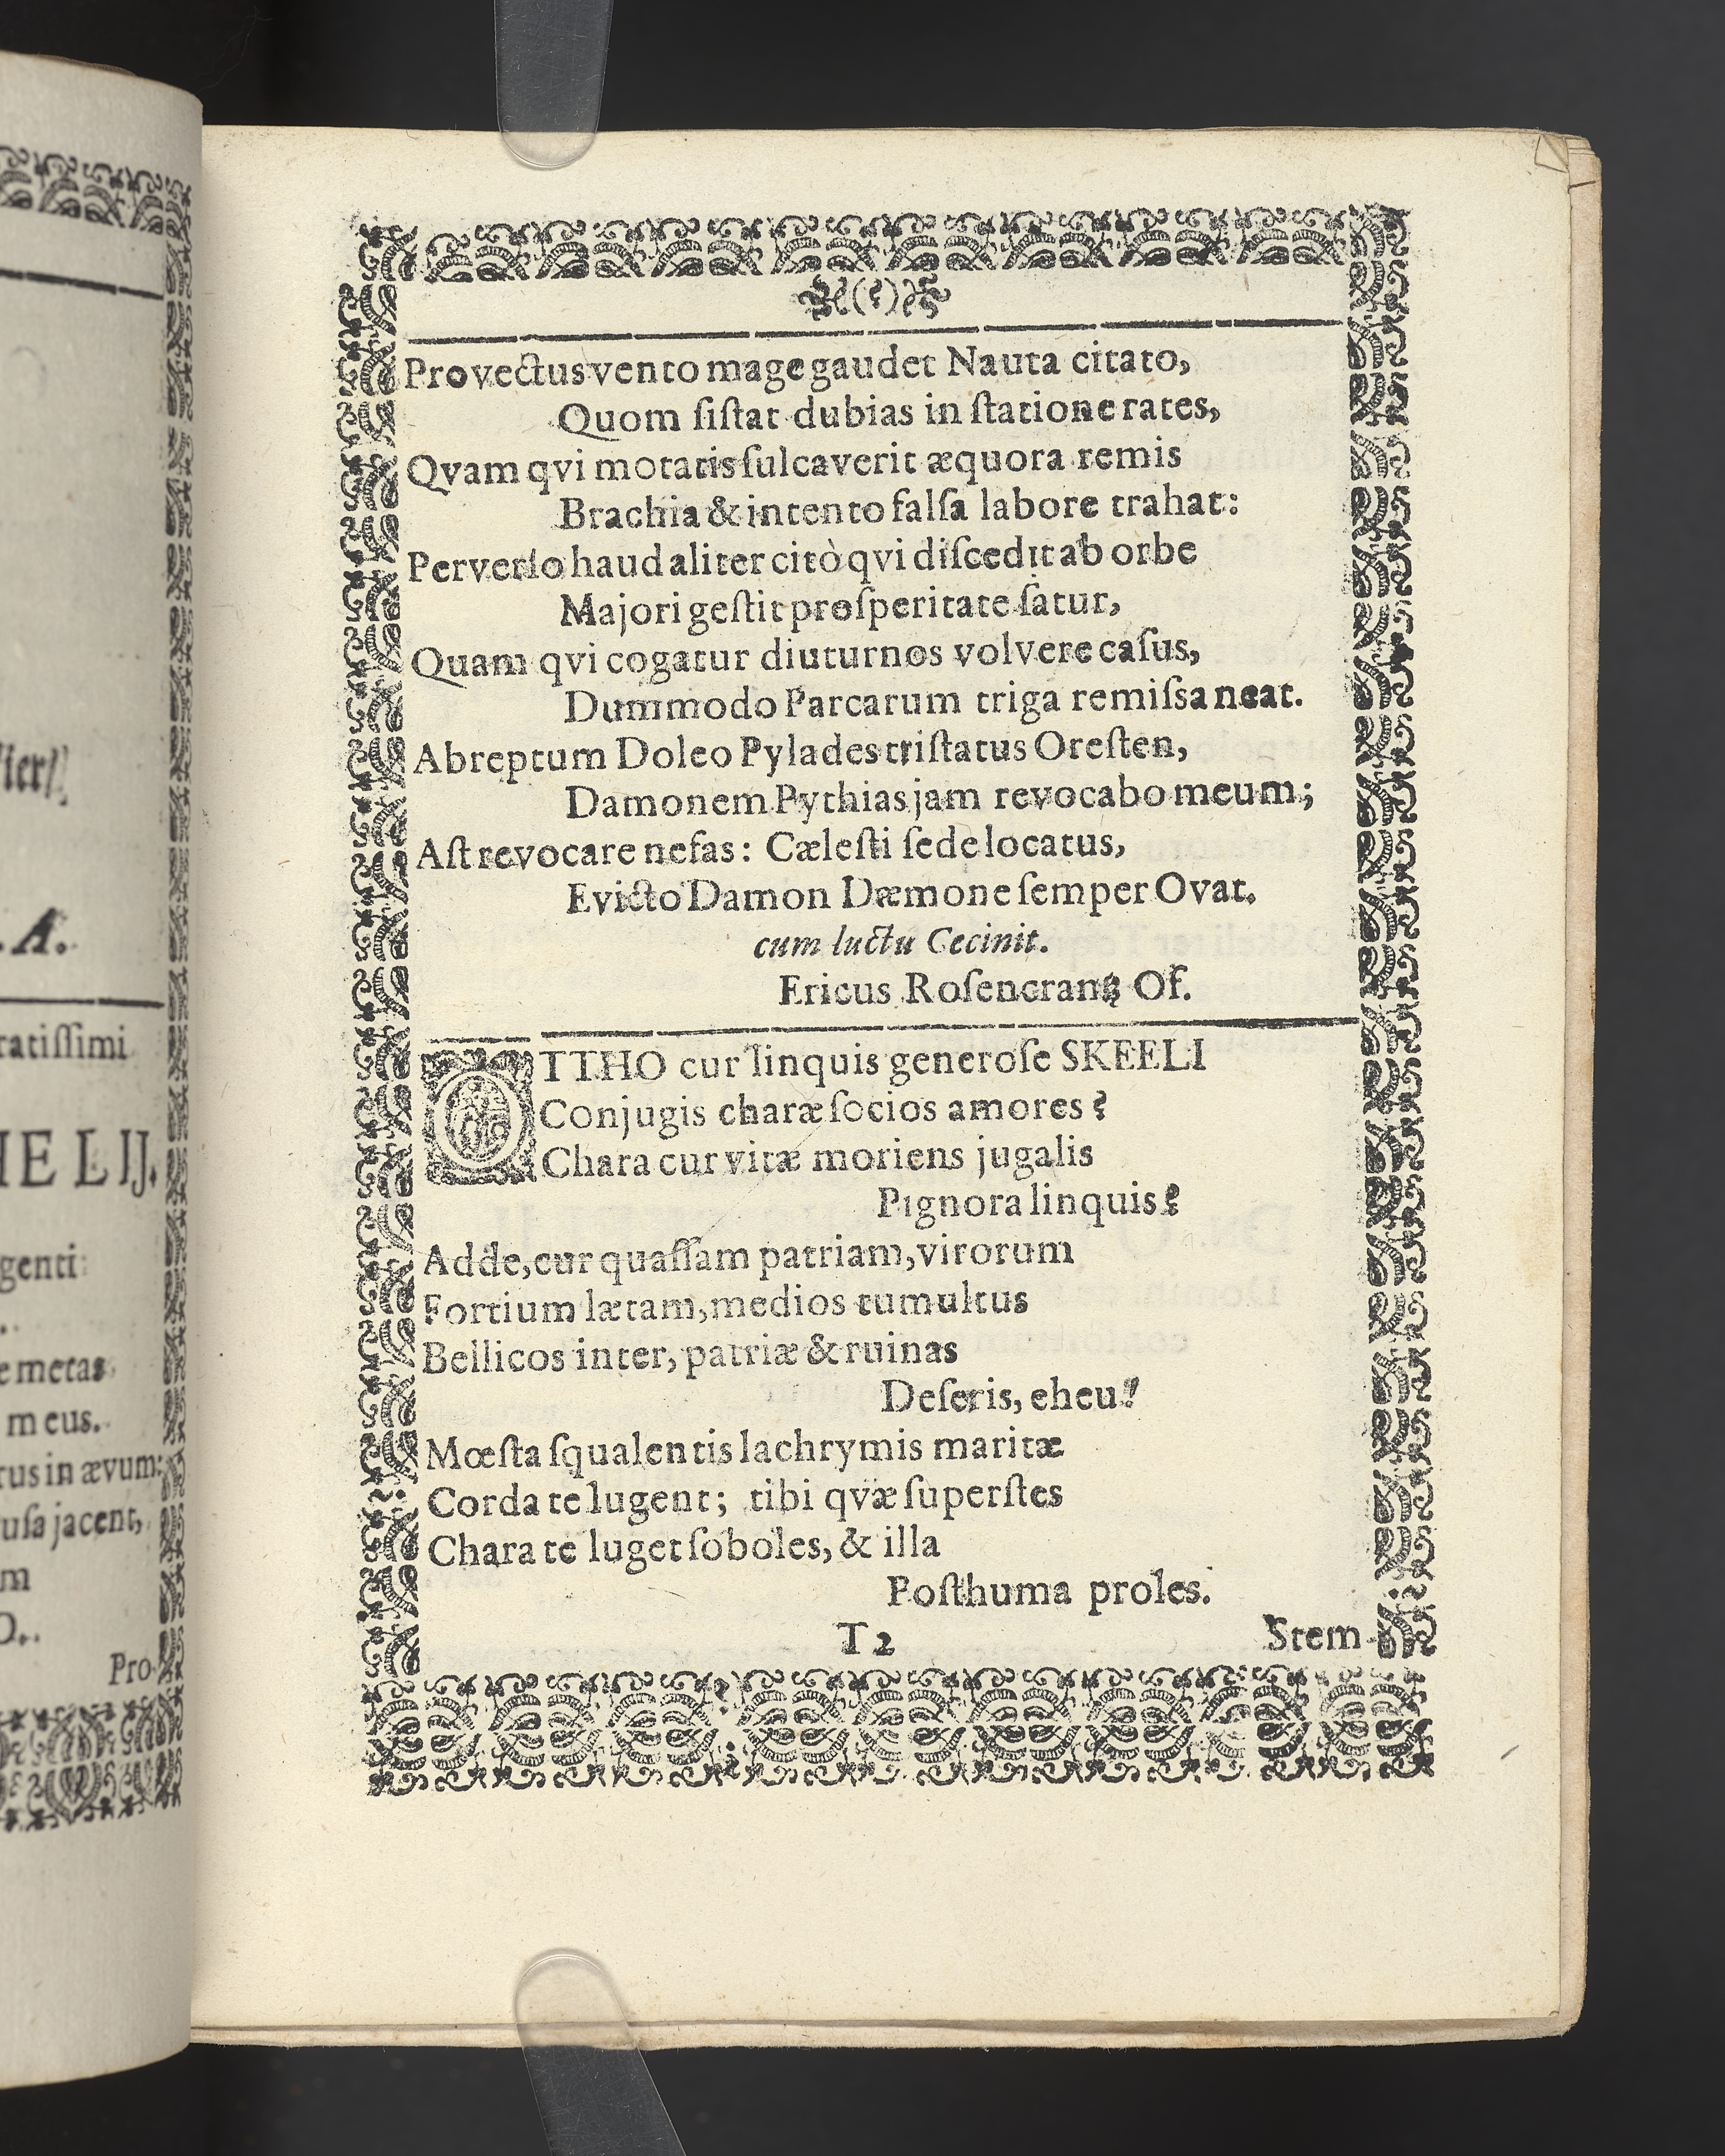 ier
. A.
ratiſſimi
HELIJ.
genti
e metas
meus.
rus in ævum:
uſa jacent,
m
O.
Pro-
Provectus vento mage gaudet Nauta citato,
Quom ſiſtat dubias in ſtatione rates,
Qvam qvi motatis ſulcaverit æquora remis
Brachia & intento falſa labore trahat:
Perverſo haud aliter citò qvi diſcedit ab orbe
Majori geſtit proſperitate ſatur,
Quam qvi cogatur diuturnos volvere caſus,
Dummodo Parcarum triga remiſsa neat.
Abreptum Doleo Pylades triſtatus Oreſten,
Damonem Pythias jam revocabo meum;
Aſt revocare nefas: Cæleſti ſede locatus,
Evicto Damon Dæmone ſemper Ovat.
cum luctu Cecinit.
Ericus Roſencrantz Of.
OTTHO cur linquis generoſe SKEELI
Conjugis charæ ſocios amores?
Chara cur vitæ moriens jugalis
Pignora linquis?
Adde, cur quaſſam patriam, virorum
Fortium lætam, medios tumultus
Bellicos inter, patriæ & ruinas
Deſeris, eheu!
Mœſta ſqualentis lachrymis maritæ
Corda te lugent; tibi qvæ ſuperſtes
Chara te luget ſoboles, & illa
Poſthuma proles.
T 2
Stem-